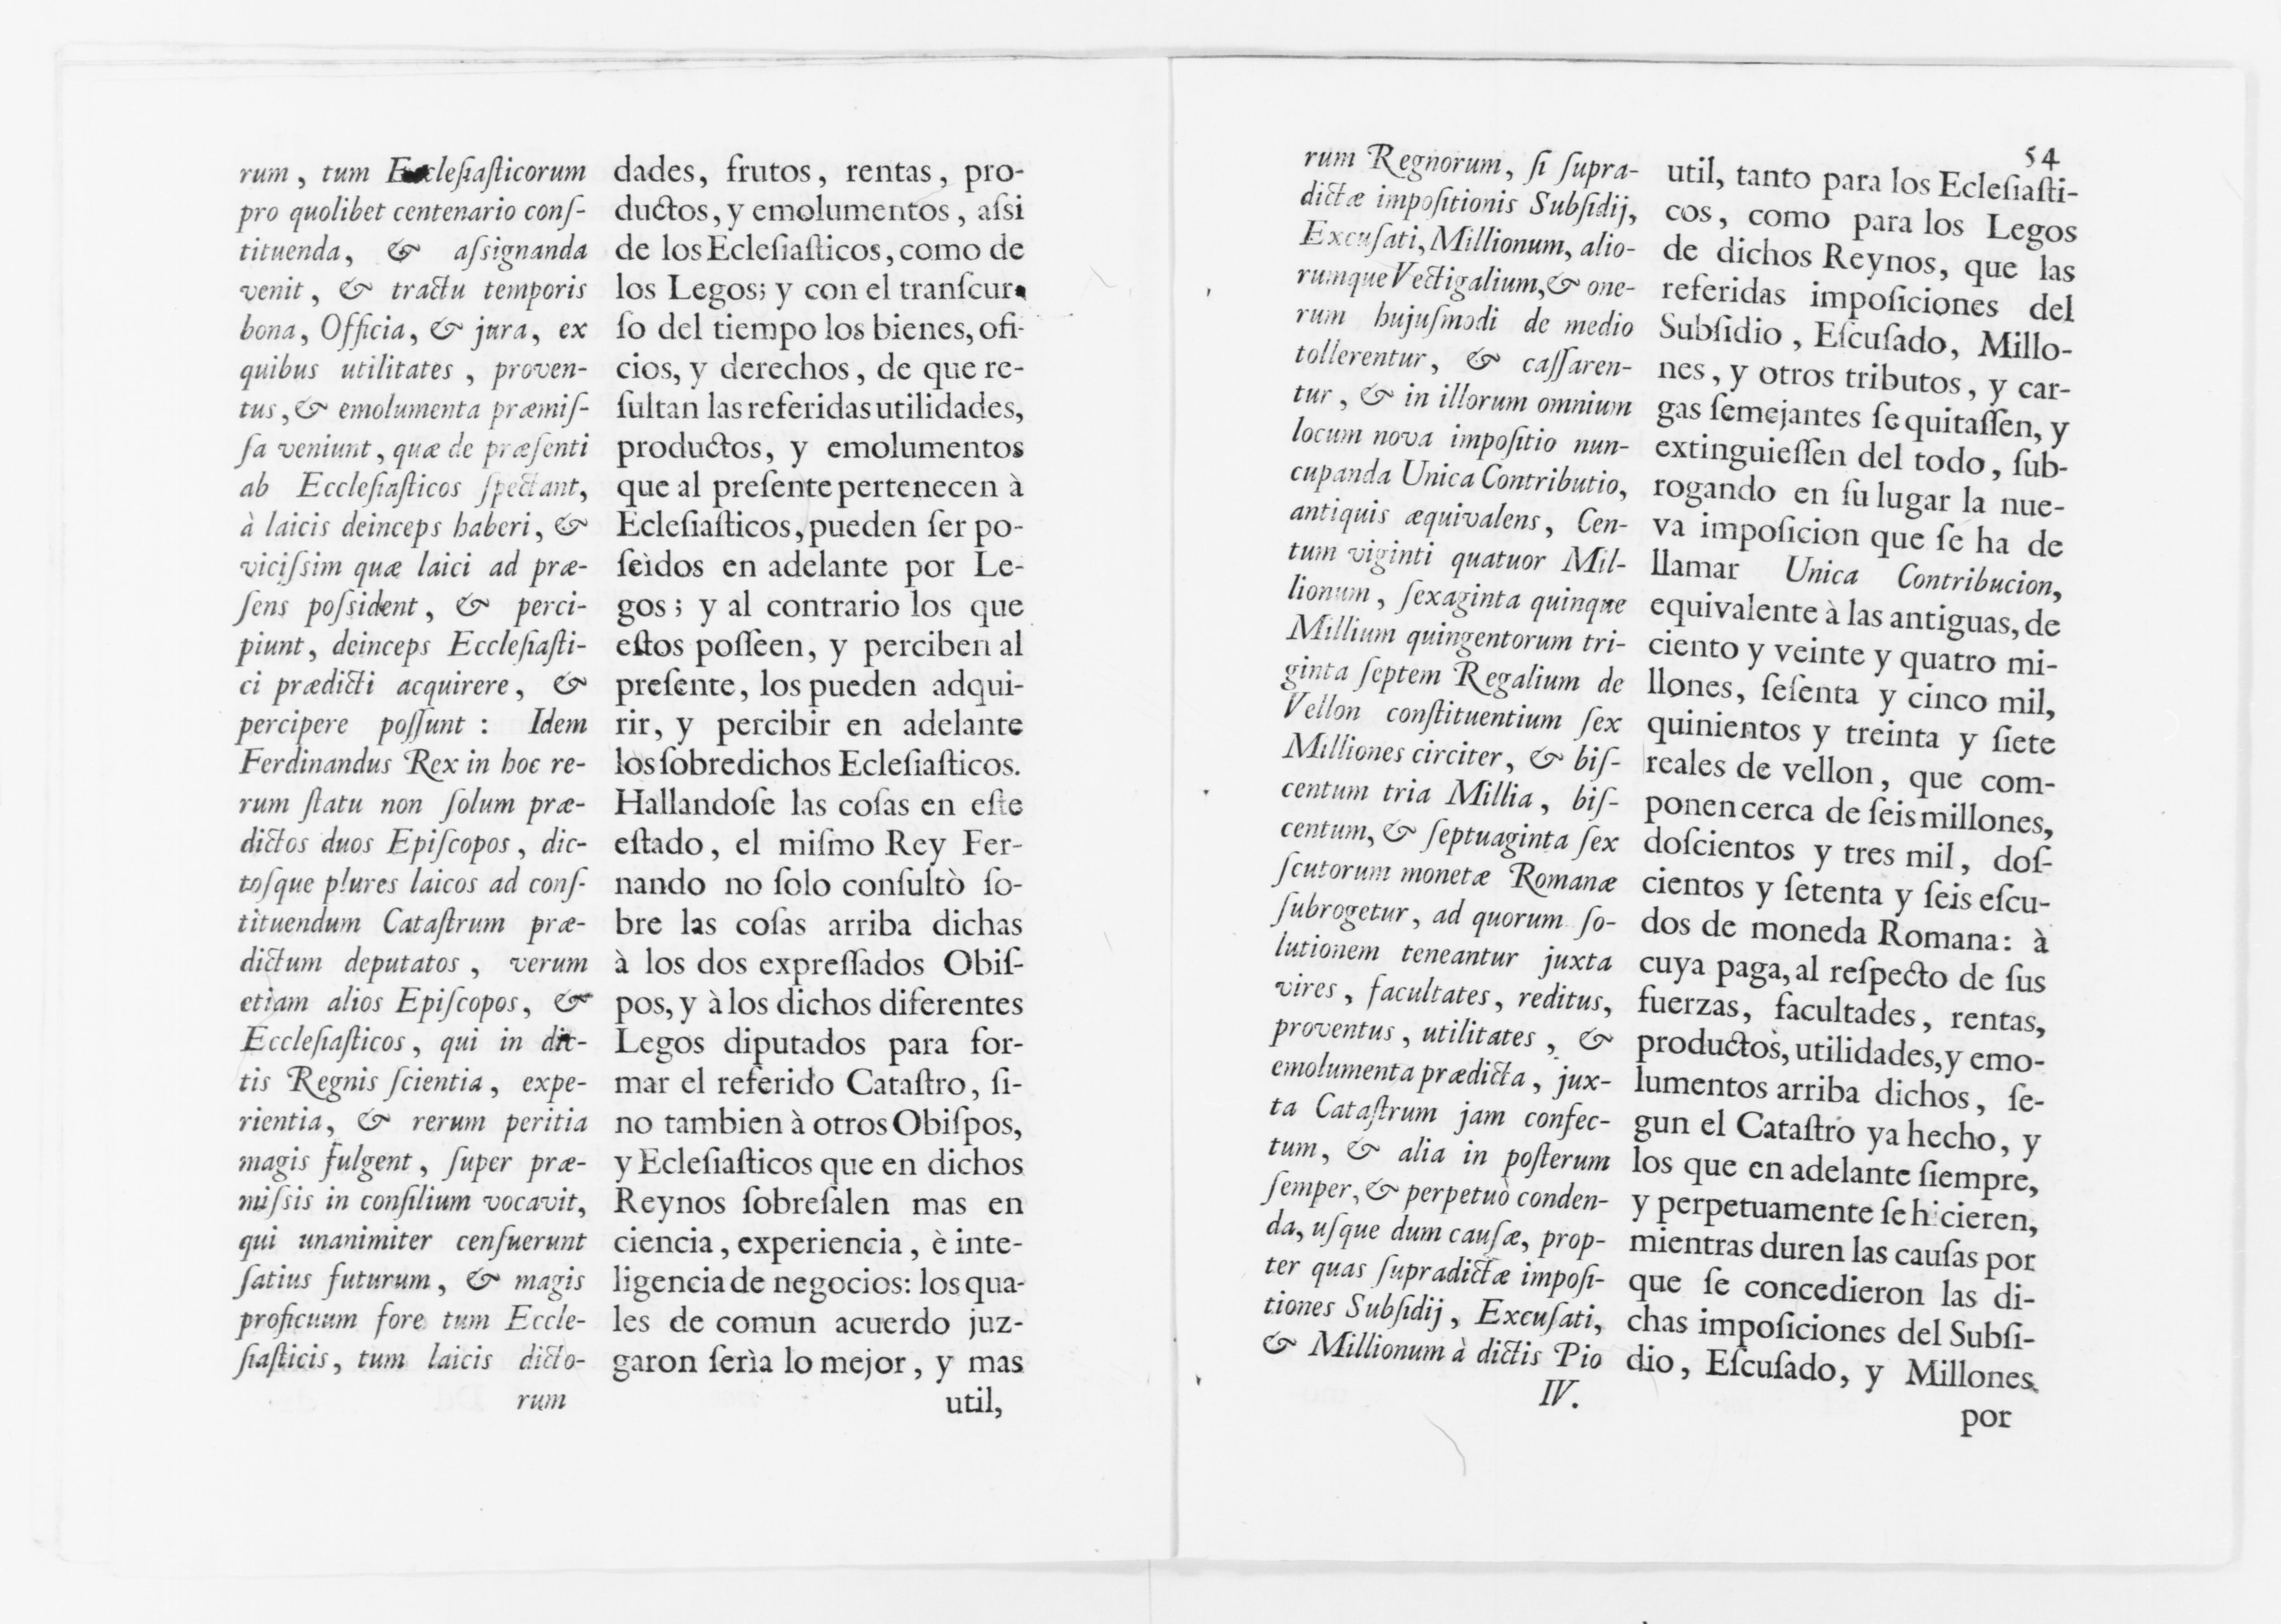 rum, tum Eccleſiaſticorum
pro quolibet centenario conſ-
tituenda, & aſsignanda
venit, & tractu temporis
bona, Officia, & jura, ex
quibus utilitates, proven-
tus, & emolumenta præmiſ-
ſa veniunt, quæ de præſenti
ab Eccleſiaſticos ſpectant,
à laicis deinceps haberi, &
viciſsim quæ laici ad præ-
ſens poſsident, & perci-
piunt, deinceps Eccleſiaſti-
ci prædicti acquirere, &
percipere poſſunt : Idem
Ferdinandus Rex in hoc re-
rum ſtatu non ſolum præ-
dictos duos Epiſcopos, dic-
toſque plures laicos ad conſ-
tituendum Cataſtrum præ-
dictum deputatos, verum
etiam alios Epiſcopos, &
Eccleſiaſticos, qui in dic-
tis Regnis ſcientia, expe-
rientia, & rerum peritia
magis fulgent, ſuper præ-
miſsis in conſilium vocavit,
qui unanimiter cenſuerunt
ſatius futurum, & magis
proficuum fore tum Eccle-
ſiaſticis, tum laicis dicto-
rum
dades, frutos, rentas, pro-
ductos, y emolumentos, aſsi
de los Ecleſiaſticos, como de
los Legos; y con el tranſcur-
ſo del tiempo los bienes, ofi-
cios, y derechos, de que re-
ſultan las referidas utilidades,
productos, y emolumentos
que al preſente pertenecen à
Ecleſiaſticos, pueden ſer po-
ſeìdos en adelante por Le-
gos; y al contrario los que
eſtos poſſeen, y perciben al
preſente, los pueden adqui-
rir, y percibir en adelante
los ſobredichos Ecleſiaſticos.
Hallandoſe las coſas en eſte
eſtado, el miſmo Rey Fer-
nando no ſolo conſultò ſo-
bre las coſas arriba dichas
à los dos expreſſados Obiſ-
pos, y à los dichos diferentes
Legos diputados para for-
mar el referido Cataſtro, ſi-
no tambien à otros Obiſpos,
y Ecleſiaſticos que en dichos
Reynos ſobreſalen mas en
ciencia, experiencia, è inte-
ligencia de negocios: los qua-
les de comun acuerdo juz-
garon ſerìa lo mejor, y mas
util,
54
rum Regnorum, ſi ſupra-
dictæ impoſitionis Subſidij,
Excuſati, Millionum, alio-
rumque Vectigalium, & one-
rum hujuſmodi de medio
tollerentur, & caſſaren-
tur, & in illorum omnium
locum nova impoſitio nun-
cupanda Unica Contributio,
antiquis æquivalens, Cen-
tum viginti quatuor Mil-
lionum, ſexaginta quinque
Millium quingentorum tri-
ginta ſeptem Regalium de
Vellon conſtituentium ſex
Milliones circiter, & biſ-
centum tria Millia, biſ-
centum, & ſeptuaginta ſex
ſcutorum monetæ Romanæ
ſubrogetur, ad quorum ſo-
lutionem teneantur juxta
vires, facultates, reditus,
proventus, utilitates, &
emolumenta prædicta, jux-
ta Cataſtrum jam confec-
tum, & alia in poſterum
ſemper, & perpetuò conden-
da, uſque dum cauſæ, prop-
ter quas ſupradictæ impoſi-
tiones Subſidij, Excuſati,
& Millionum à dictis Pio
IV.
util, tanto para los Ecleſiaſti-
cos, como para los Legos
de dichos Reynos, que las
referidas impoſiciones del
Subſidio, Eſcuſado, Millo-
nes, y otros tributos, y car-
gas ſemejantes ſe quitaſſen, y
extinguieſſen del todo, ſub-
rogando en ſu lugar la nue-
va impoſicion que ſe ha de
llamar Unica Contribucion,
equivalente à las antiguas, de
ciento y veinte y quatro mi-
llones, ſeſenta y cinco mil,
quinientos y treinta y ſiete
reales de vellon, que com-
ponen cerca de ſeis millones,
doſcientos y tres mil, doſ-
cientos y ſetenta y ſeis eſcu-
dos de moneda Romana: à
cuya paga, al reſpecto de ſus
fuerzas, facultades, rentas,
productos, utilidades, y emo-
lumentos arriba dichos, ſe-
gun el Cataſtro ya hecho, y
los que en adelante ſiempre,
y perpetuamente ſe hicieren,
mientras duren las cauſas por
que ſe concedieron las di-
chas impoſiciones del Subſi-
dio, Eſcuſado, y Millones
por